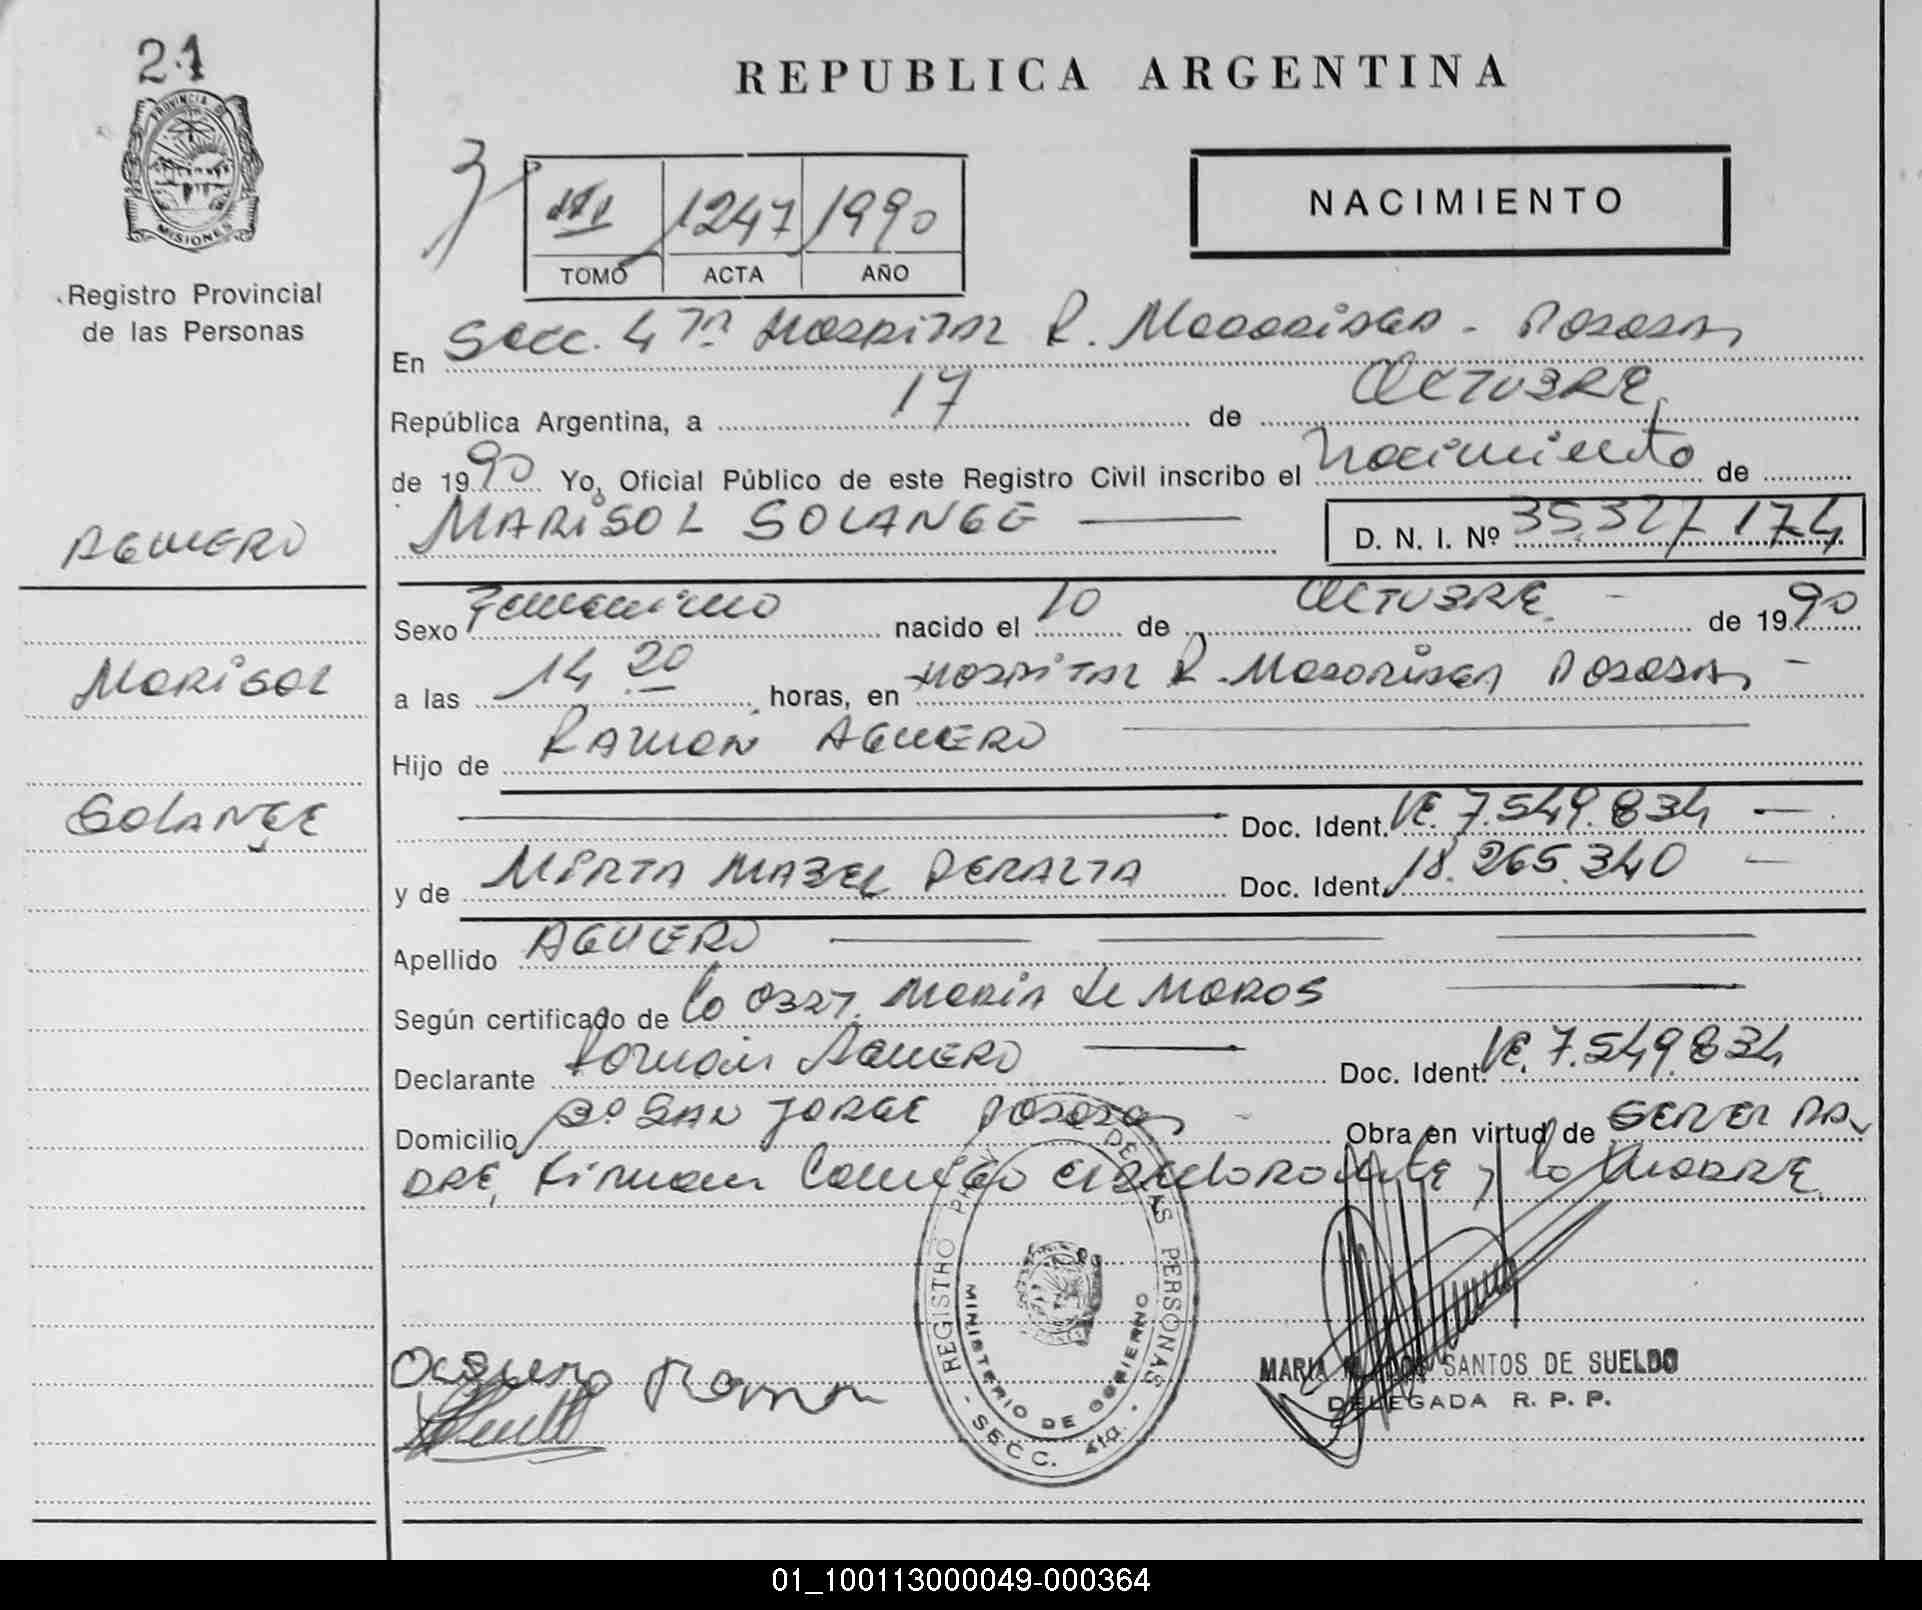 21
PROVINCIA DE
MISIONES
Registro Provincial
de las Personas
REPUBLICA ARGENTINA
III 1247 1990
TOMO ACTA AÑO
NACIMIENTO
En Secc. 4ta Hospital R. Madariaga - Posadas
República Argentina, a 17 de OCTUBRE
de 1990 Yo, Oficial Público de este Registro Civil inscribo el nacimiento de
MARISOL SOLANGE D. N. I. Nº 35.327.174
AGUERO
MARISOL
SOLANGE
Sexo Femenino nacido el 10 de OCTUBRE de 1990
a las 14 20 horas, en HOSPITAL R. Madariaga Posadas -
Hijo de RAMON AGUERO
Doc. Ident. 7.549.834
y de MIRTA MABEL PERALTA Doc. Ident. 18.265.340
Apellido AGUERO
Según certificado de la Obst. Maria de Moros
Declarante Roman Aguero Doc. Ident. 7.549.834
Domicilio Bº SAN JORGE Posadas Obra en virtud de SER EL PA-
DRE, Firman Conmigo el declarante y la MADRE
REGISTRO DE LAS PERSONAS
MINISTERIO DE GOBIERNO
- SECC. 4ta. -
Aguero Ramon
MARIA SANTOS DE SUELDO
DELEGADA R. P. P.
01_100113000049-000364